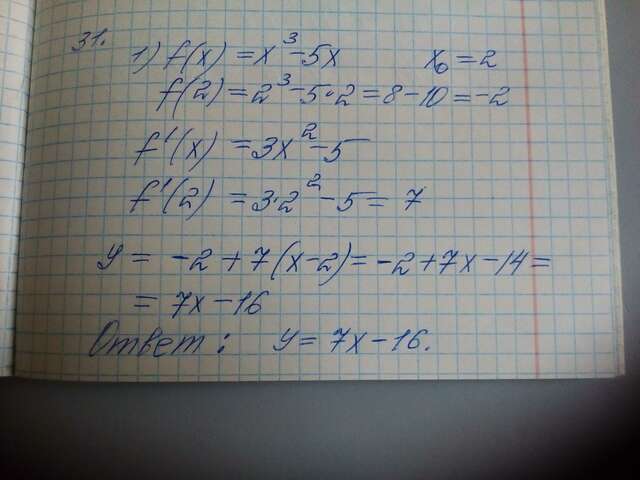 31.
1) f(x) = x³-5x x₀ = 2
f(2) = 2³-5·2 = 8-10 = -2
f'(x) = 3x²-5
f'(2) = 3·2²-5 = 7
y = -2+7(x-2) = -2+7x-14 =
= 7x-16
Ответ: y = 7x-16.